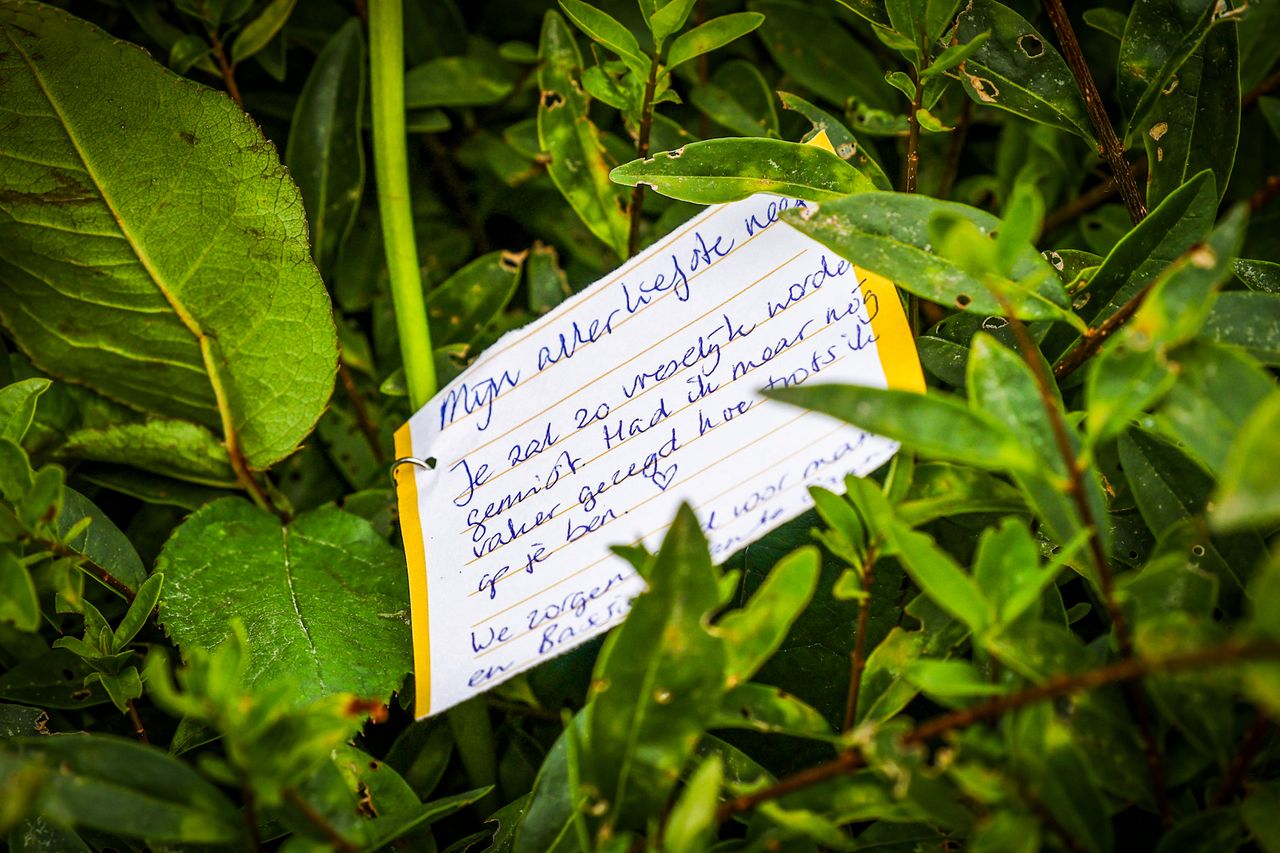 Mijn allerliefste
Je zal zo vreselijk worde
gemist. Had ik maar nóg
vaker gezegd hoe trots ik
op je ben. ♡
We zorgen voor
en